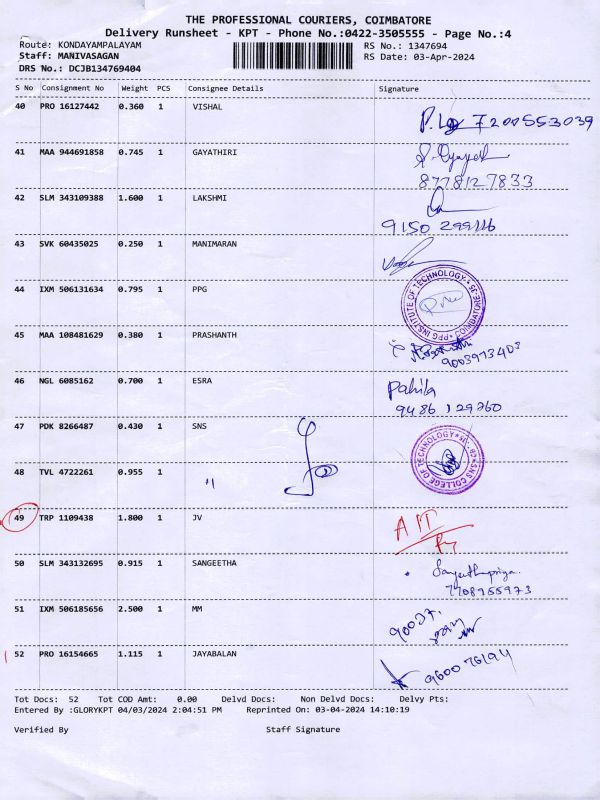 THE PROFESSIONAL COURIERS, COIMBATORE
Delivery Runsheet - KPT - Phone No.:0422-3505555 - Page No.:4
Route: KONDAYAMPALAYAM RS No.: 1347694
Staff: MANIVASAGAN RS Date: 03-Apr-2024
DRS No.: DCJB134769404
S No Consignment No Weight PCS Consignee Details Signature
40 PRO 16127442 0.360 1 VISHAL
7200553039
41 MAA 944691858 0.745 1 GAYATHIRI
8778127833
42 SLM 343109388 1.600 1 LAKSHMI
9150 299116
43 SVK 60435025 0.250 1 MANIMARAN
44 IXM 506131634 0.795 1 PPG
PPG INSTITUTE OF TECHNOLOGY COIMBATORE-35
45 MAA 108481629 0.380 1 PRASHANTH
9003973403
46 NGL 6085162 0.700 1 ESRA
Pahila
9486 129760
47 PDK 8266487 0.430 1 SNS
SNS COLLEGE OF TECHNOLOGY
48 TVL 4722261 0.955 1 "
49 TRP 1109438 1.800 1 JV
50 SLM 343132695 0.915 1 SANGEETHA
Sangeethapriya.
7708955973
51 IXM 506185656 2.500 1 MM
52 PRO 16154665 1.115 1 JAYABALAN
9600 76194
Tot Docs: 52 Tot COD Amt: 0.00 Delvd Docs: Non Delvd Docs: Delvy Pts:
Entered By :GLORYKPT 04/03/2024 2:04:51 PM Reprinted On: 03-04-2024 14:10:19
Verified By Staff Signature